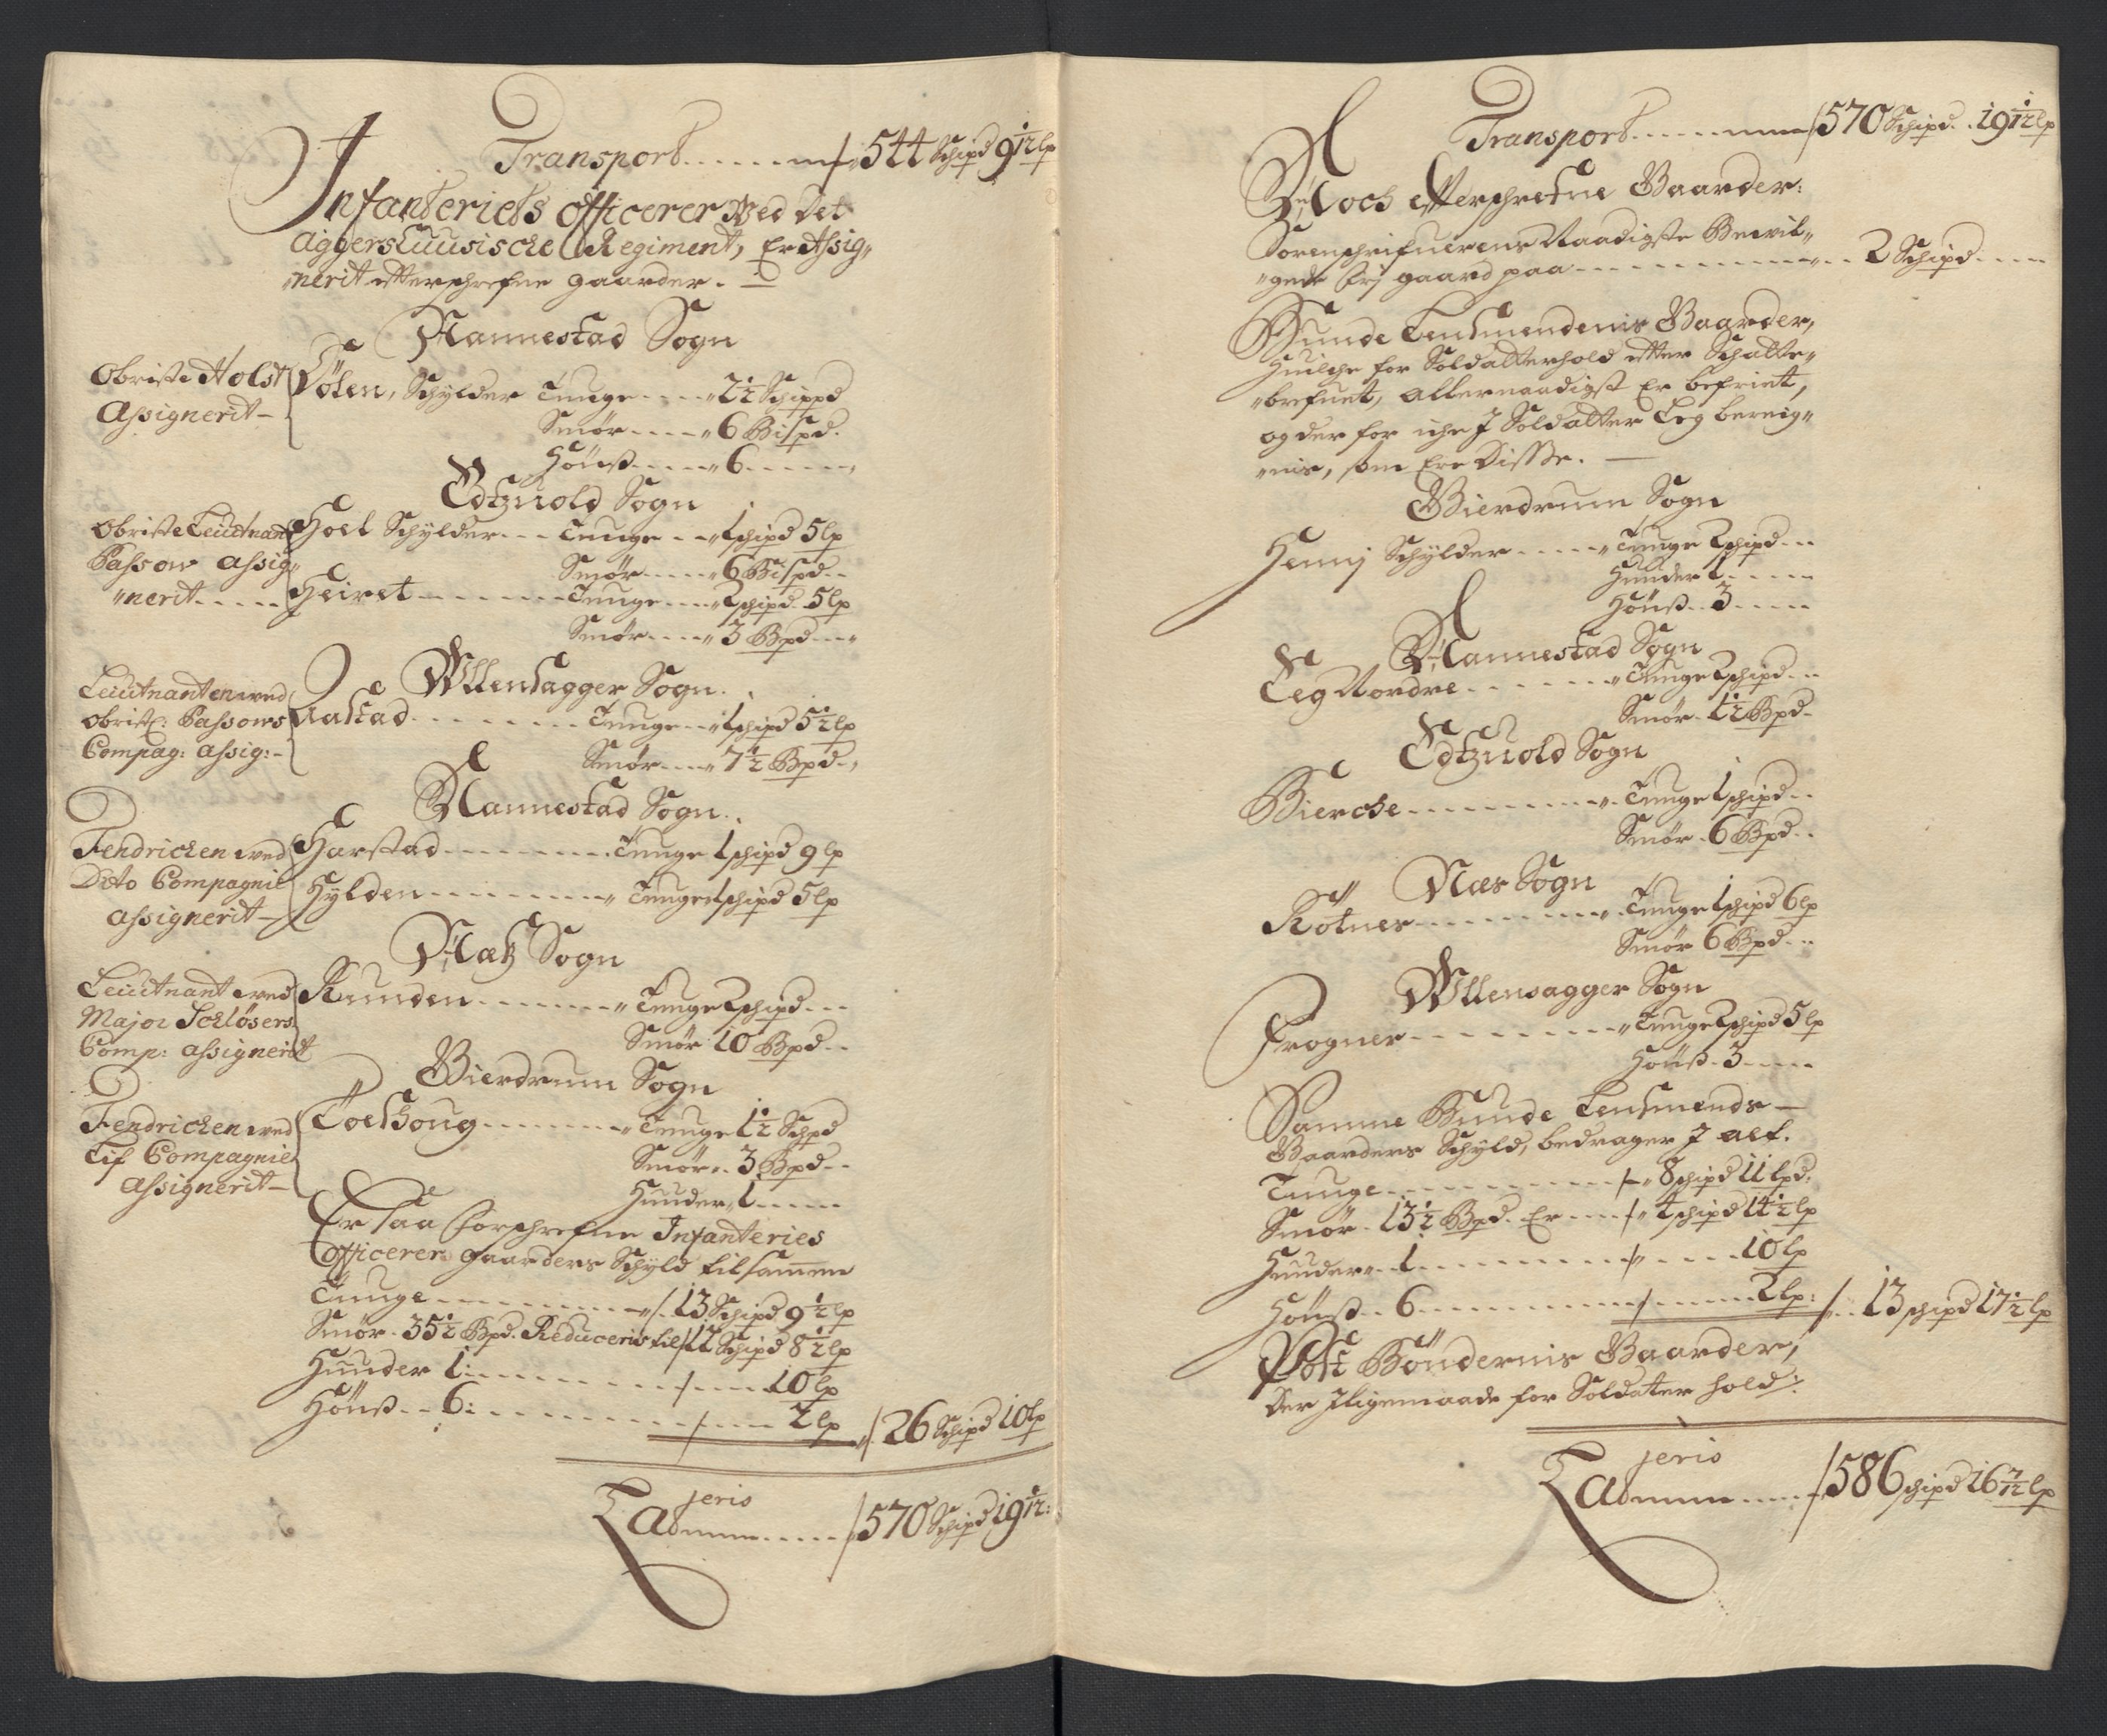 Transport ......... 544 Schipd 9 1/12 lp
Infanteriets officerer Ved det
Aggershuusische Regiment, Er Assig„
„nerit efterschrefne gaarder.
Nannestad Sogn
Obriste Holst
Assignerit –
Løken, Schylder Tunge .... 2½ Schippd
Smør .... 6 Bispd.
Hönß .... 6 ....
Edtzuold Sogn
Obriste Leutnant
Passow Assig„
„nerit ....
Hoel Schylder ... Tunge .. 1 schipd 5 lp
Smør .... 6 Bispd ..
Heiret ....... Tunge .... 2 schipd 5 lp
Smør .... 3 Bpd ...
Wllensagger Sogn.
Leutnanten wed
Obrist: Passows
Compag: Assig: –
Aastad ........ Tunge .. 1 schipd 5½ lp
Smør .... 7½ Bpd ..
Nannestad Sogn.
Fendrichen wed
Dito Compagnie
Assignerit –
Harstad ......... Tunge 1 schipd 9 lp
Hylden ......... Tunge 1 schipd 5 lp
Næß Sogn
Leutnant wed
Major Schløsers
Comp: Assignerit
Runden ....... Tunge 2 schipd ...
Smør 10 Bpd ..
Bierdrum Sogn
Fendrichen wed
Lif Compagnie
Assignerit –
Loeshoug ....... Tunge 1½ Schpd
Smør .. 3 Bpd ..
Huuder 1 .....
Er saa forschrefne Infanteries
Officerers gaarders Schyld tilsammen
Tunge .......... 13 Schipd 9½ lp
Smør . 35½ Bpd. Reduceris til 12 Schipd 8½ lp
Huuder 1 ......... 10 lp
Hönß .. 6 : ......... 2 lp 26 Schipd 10 lp
Lateris
Summa ..... 570 Schipd 19 1/12 :
Transport ........ 570 Schipd .. 19 1/12 lp
Noch efterschrefne Gaarder:
Sorenschrifuerens Naadigste Bewil„
„gede frj gaard paa ............ 2 Schipd ....
Bunde Lensmendenis Gaarder,
Huilche for Soldatterhold efter Schatte„
„brefuet, allernaadigst Er befriet,
og der for iche J Soldatter Leg bereig„
„nis, som Ere Disse. —
Bierdrum Sogn
Hemj Schylder ..... Tunge 2 schipd ...
Huuder 1 .....
Hönß .. 3 ....
Nannestad Sogn
Leg Nordre ...... Tunge 2 schipd ...
Smør . 1½ Bpd.
Edtzuold Sogn
Bierche ......... Tunge 1 schipd ..
Smør . 6 Bpd ..
Næs Sogn
Rötnes ......... Tunge 1 schipd 6 lp
Smør 6 Bpd ...
Wllensagger Sogn
Frogner ......... Tunge 2 schipd 5 lp
Hönß . 3 ....
Samme Bunde Lensmends –
Gaarders Schyld, bedrager J alt.
Tunge .......... 8 schipd 11 lpd:
Smør . 13½ Bpd. Er .... 4 schipd 14½ lp
Huuder .. 1 .......... 10 lp
Hönß .. 6 .......... 2 lp : 13 schipd 17½ lp
Post Böndernis Gaarder,
Der Jligemaade for Soldater hold :
Lateris
Summa ..... 586 schipd 16 7/12 lp